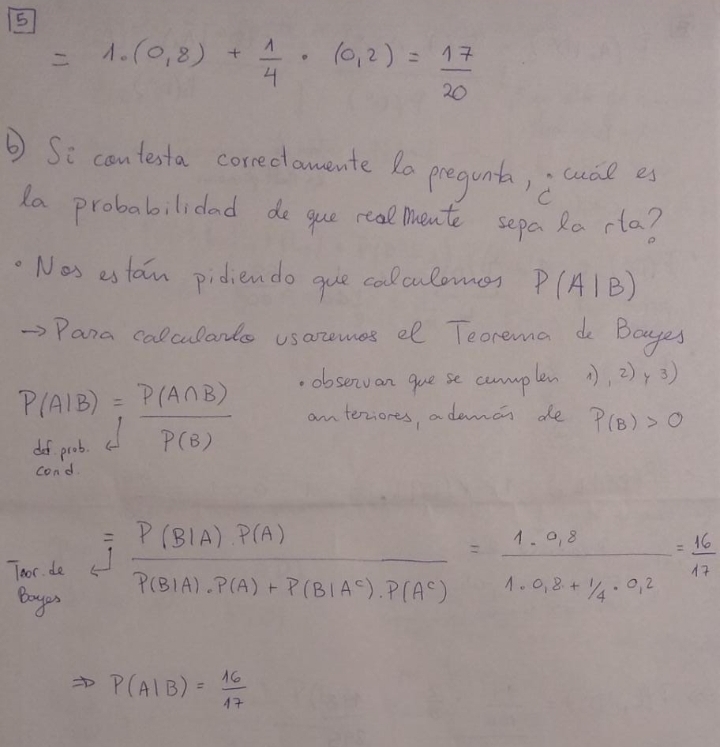 5
= 1.(0,8) + 1/4 . (0,2) = 17/20
b) Si contesta correctamente la pregunta, ¿cuál es
la probabilidad de que realmente sepa la rta?
• Nos están pidiendo que calculemos P(A|B)
→ Para calcularlo usaremos el Teorema de Bayes
P(A|B) = P(A∩B) / P(B)
def. prob.
cond.
• observar que se cumplen 1), 2) y 3)
anteriores, además de P(B) > 0
= P(B|A).P(A) / P(B|A).P(A) + P(B|Aᶜ).P(Aᶜ) = 1.0,8 / 1.0,8 + 1/4.0,2 = 16/17
Teor. de
Bayes
⇒ P(A|B) = 16/17